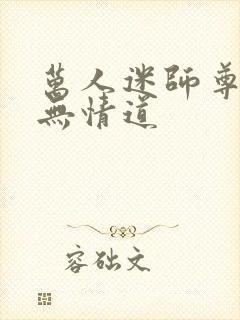 萬人迷師尊
無情道
容础文